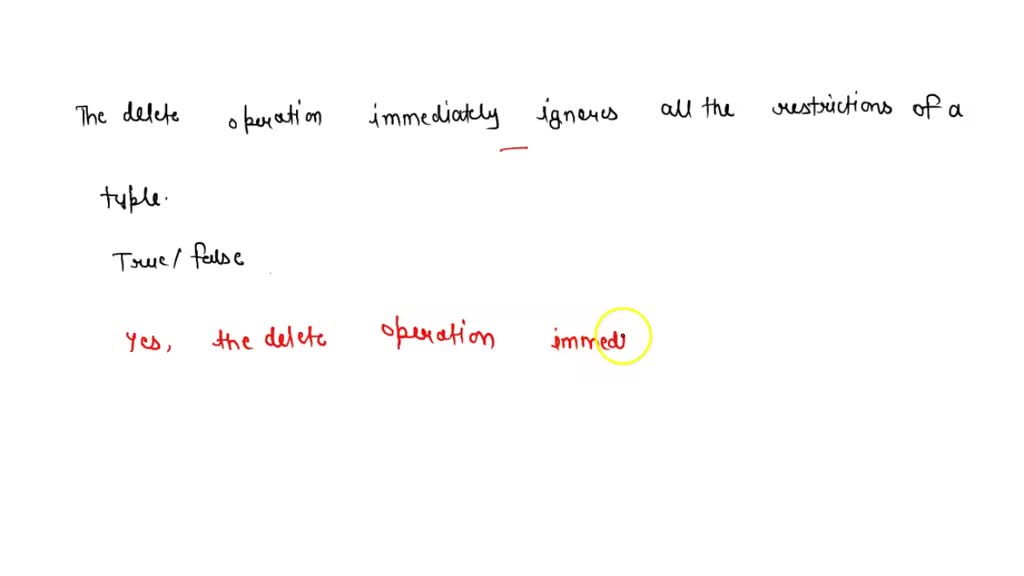 The delete operation immediately ignores all the restrictions of a
tuple.
True/ false
Yes, the delete operation immed